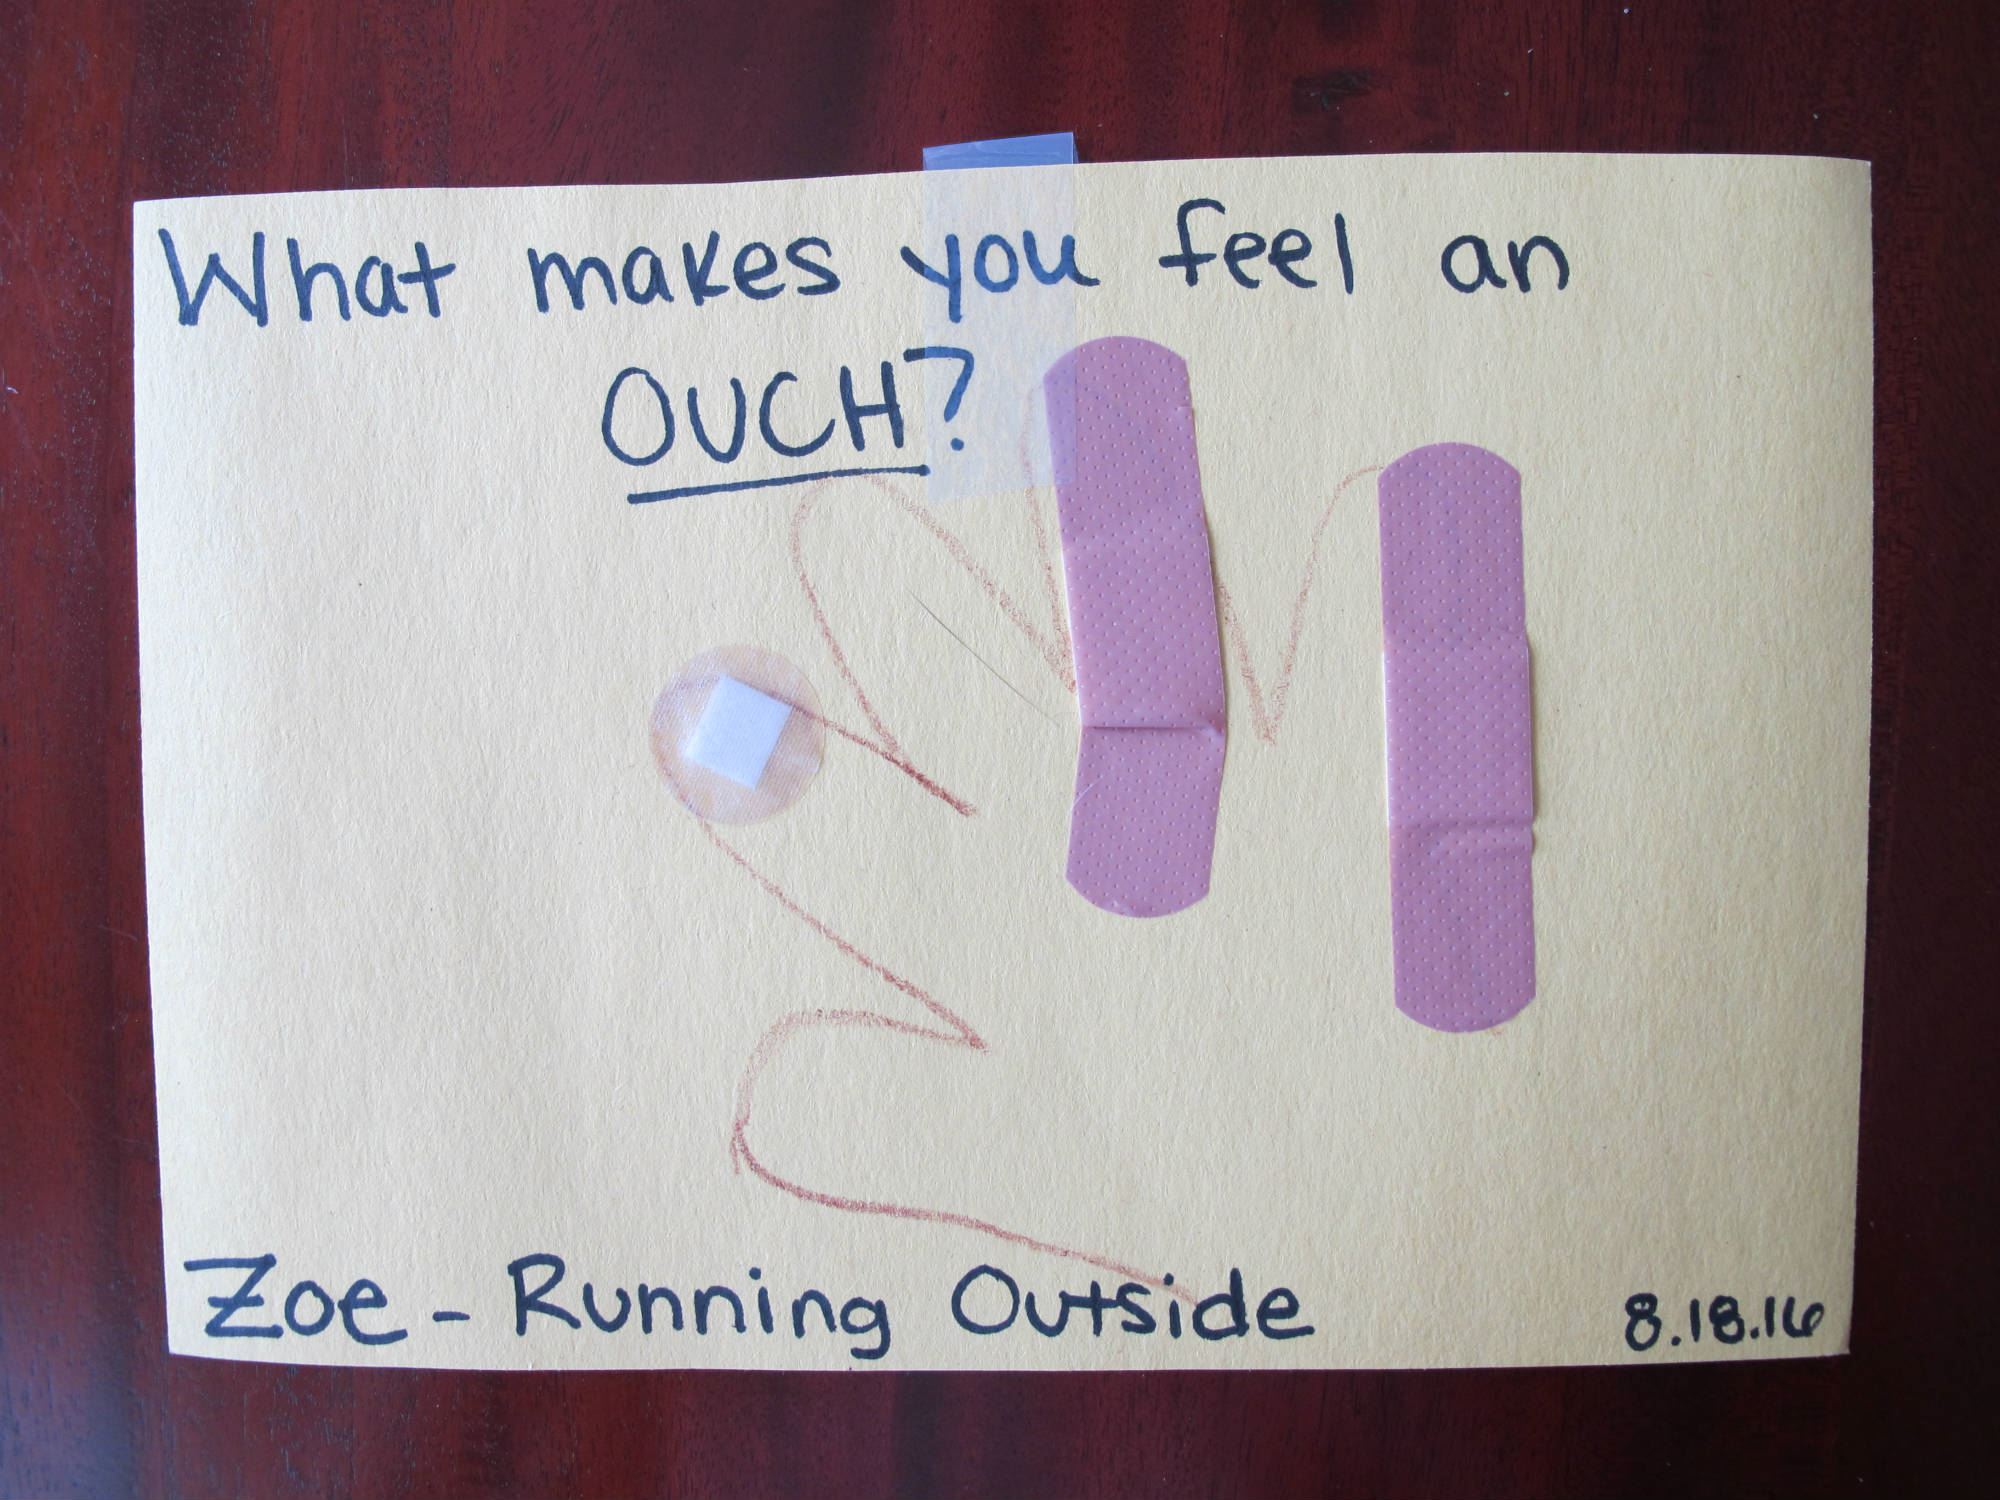 What makes you feel an
OUCH?
Zoe - Running Outside
8.18.16